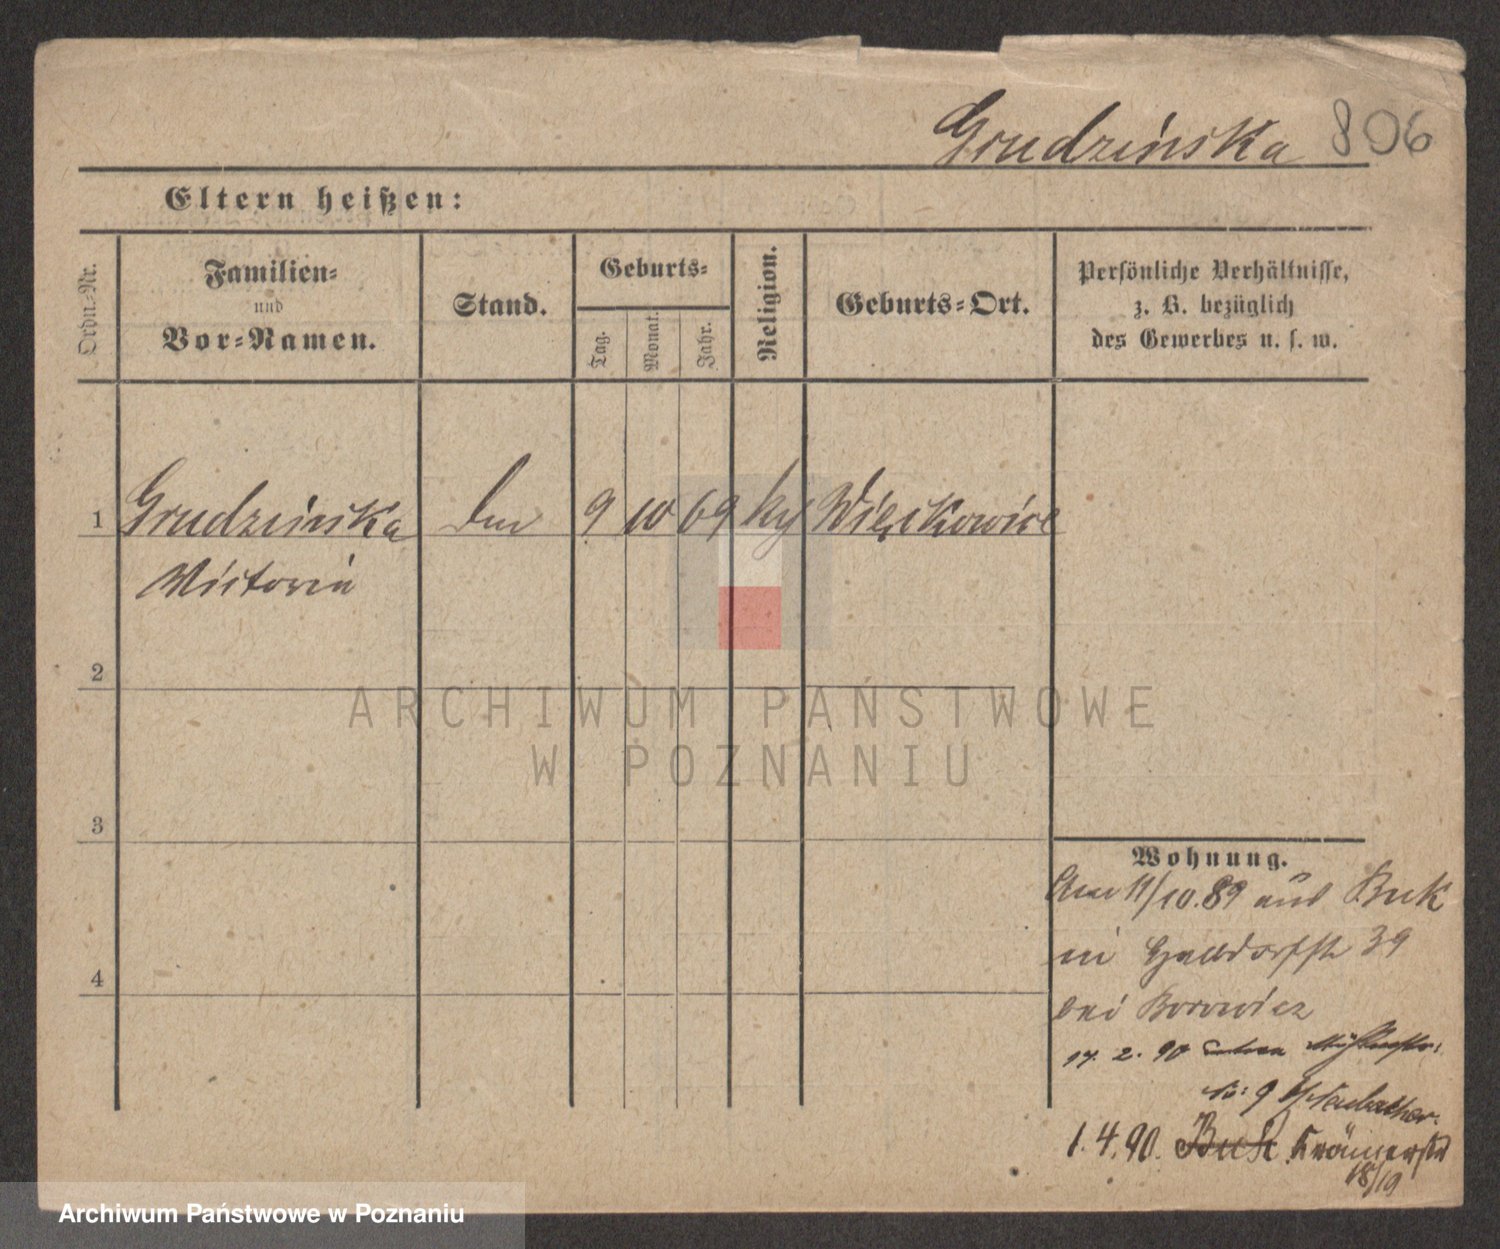 Grudzinska 806
Eltern heißen:
Ordn.-Nr.
Familien-
und
Vor-Namen.
Stand.
Geburts-
Tag.
Monat.
Jahr.
Religion.
Geburts-Ort.
Persönliche Verhältnisse,
z. B. bezüglich
des Gewerbes u. s. w.
1 Grudzinska 9 10 69 Więckowice
Victoria
2
3
4
Wohnung.
11/10.89 aus Buk
39
bei Borowicz
17. 2. 90
No: 9
1.4.90. Buk Krämerstr
18/19
ARCHIWUM PAŃSTWOWE
W POZNANIU
Archiwum Państwowe w Poznaniu